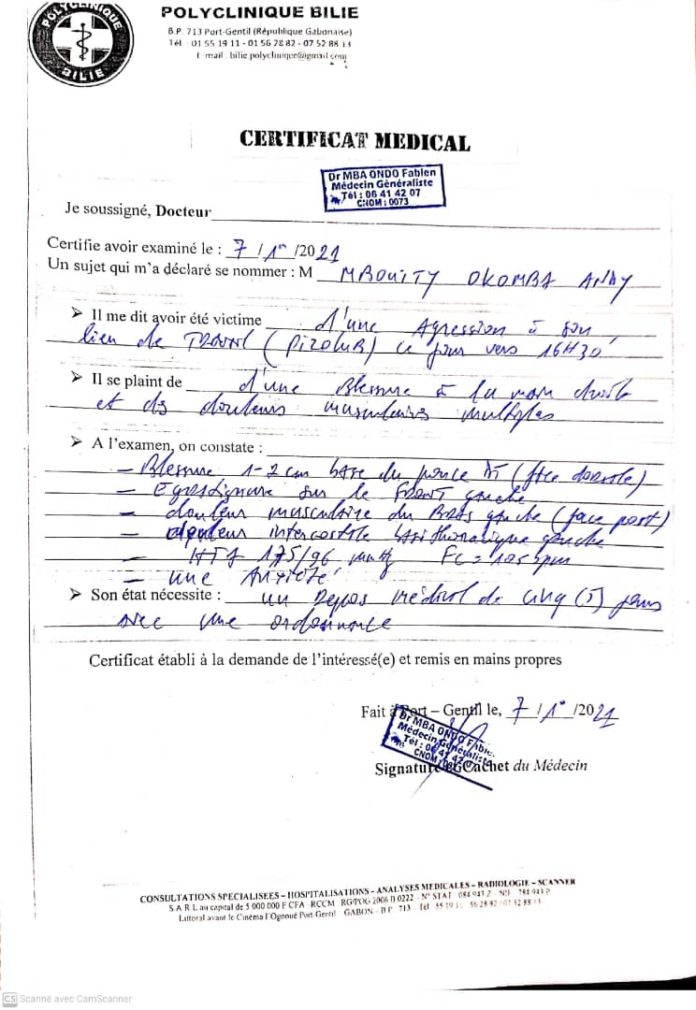 POLYCLINIQUE BILIE
POLYCLINIQUE
BILIE
B.P. 713 Port-Gentil (République Gabonaise)
Tél : 01 55 19 11 - 01 56 78 82 - 07 52 88 13
E-mail : bilie.polyclinique@gmail.com
CERTIFICAT MEDICAL
Dr MBA ONDO Fabien
Médecin Généraliste
Tél : 06 41 42 07
CNOM : 0073
Je soussigné, Docteur
Certifie avoir examiné le : 7 /1° /2021
Un sujet qui m'a déclaré se nommer : M MBOUITY OKOMBA ANDY
➢ Il me dit avoir été victime d'une Agression à son
lieu de TRAVAIL ( PIZOLUB) ce jour vers 16H30
➢ Il se plaint de d'une Blessure à la main droite
et des douleurs musculaires multiples
➢ A l'examen, on constate :
- Blessure 1-2 cm base du pouce Dt (face dorsale)
- Egratignure sur le FRONT gauche
- douleur musculaire du Bras gauche (face post)
- douleur intercostale basithoracique gauche
- HTA 175/96 mmHg Fc = 105 bpm
- une Anxiété
➢ Son état nécessite : un Repos médical de cinq (5) jours
avec une ordonnance
Certificat établi à la demande de l'intéressé(e) et remis en mains propres
Fait à Port – Gentil le, 7 /1° /2021
Dr MBA ONDO Fabien
Médecin Généraliste
Tél : 06 41 42 07
CNOM
Signature et Cachet du Médecin
CONSULTATIONS SPECIALISEES – HOSPITALISATIONS – ANALYSES MEDICALES – RADIOLOGIE – SCANNER
S.A.R.L au capital de 5 000 000 F CFA - RCCM RG/POG 2006 B 0222 - N° STAT
Littoral avant le Cinéma l'Ogooué Port-Gentil GABON - B.P. 713 - Tél
CS Scanné avec CamScanner